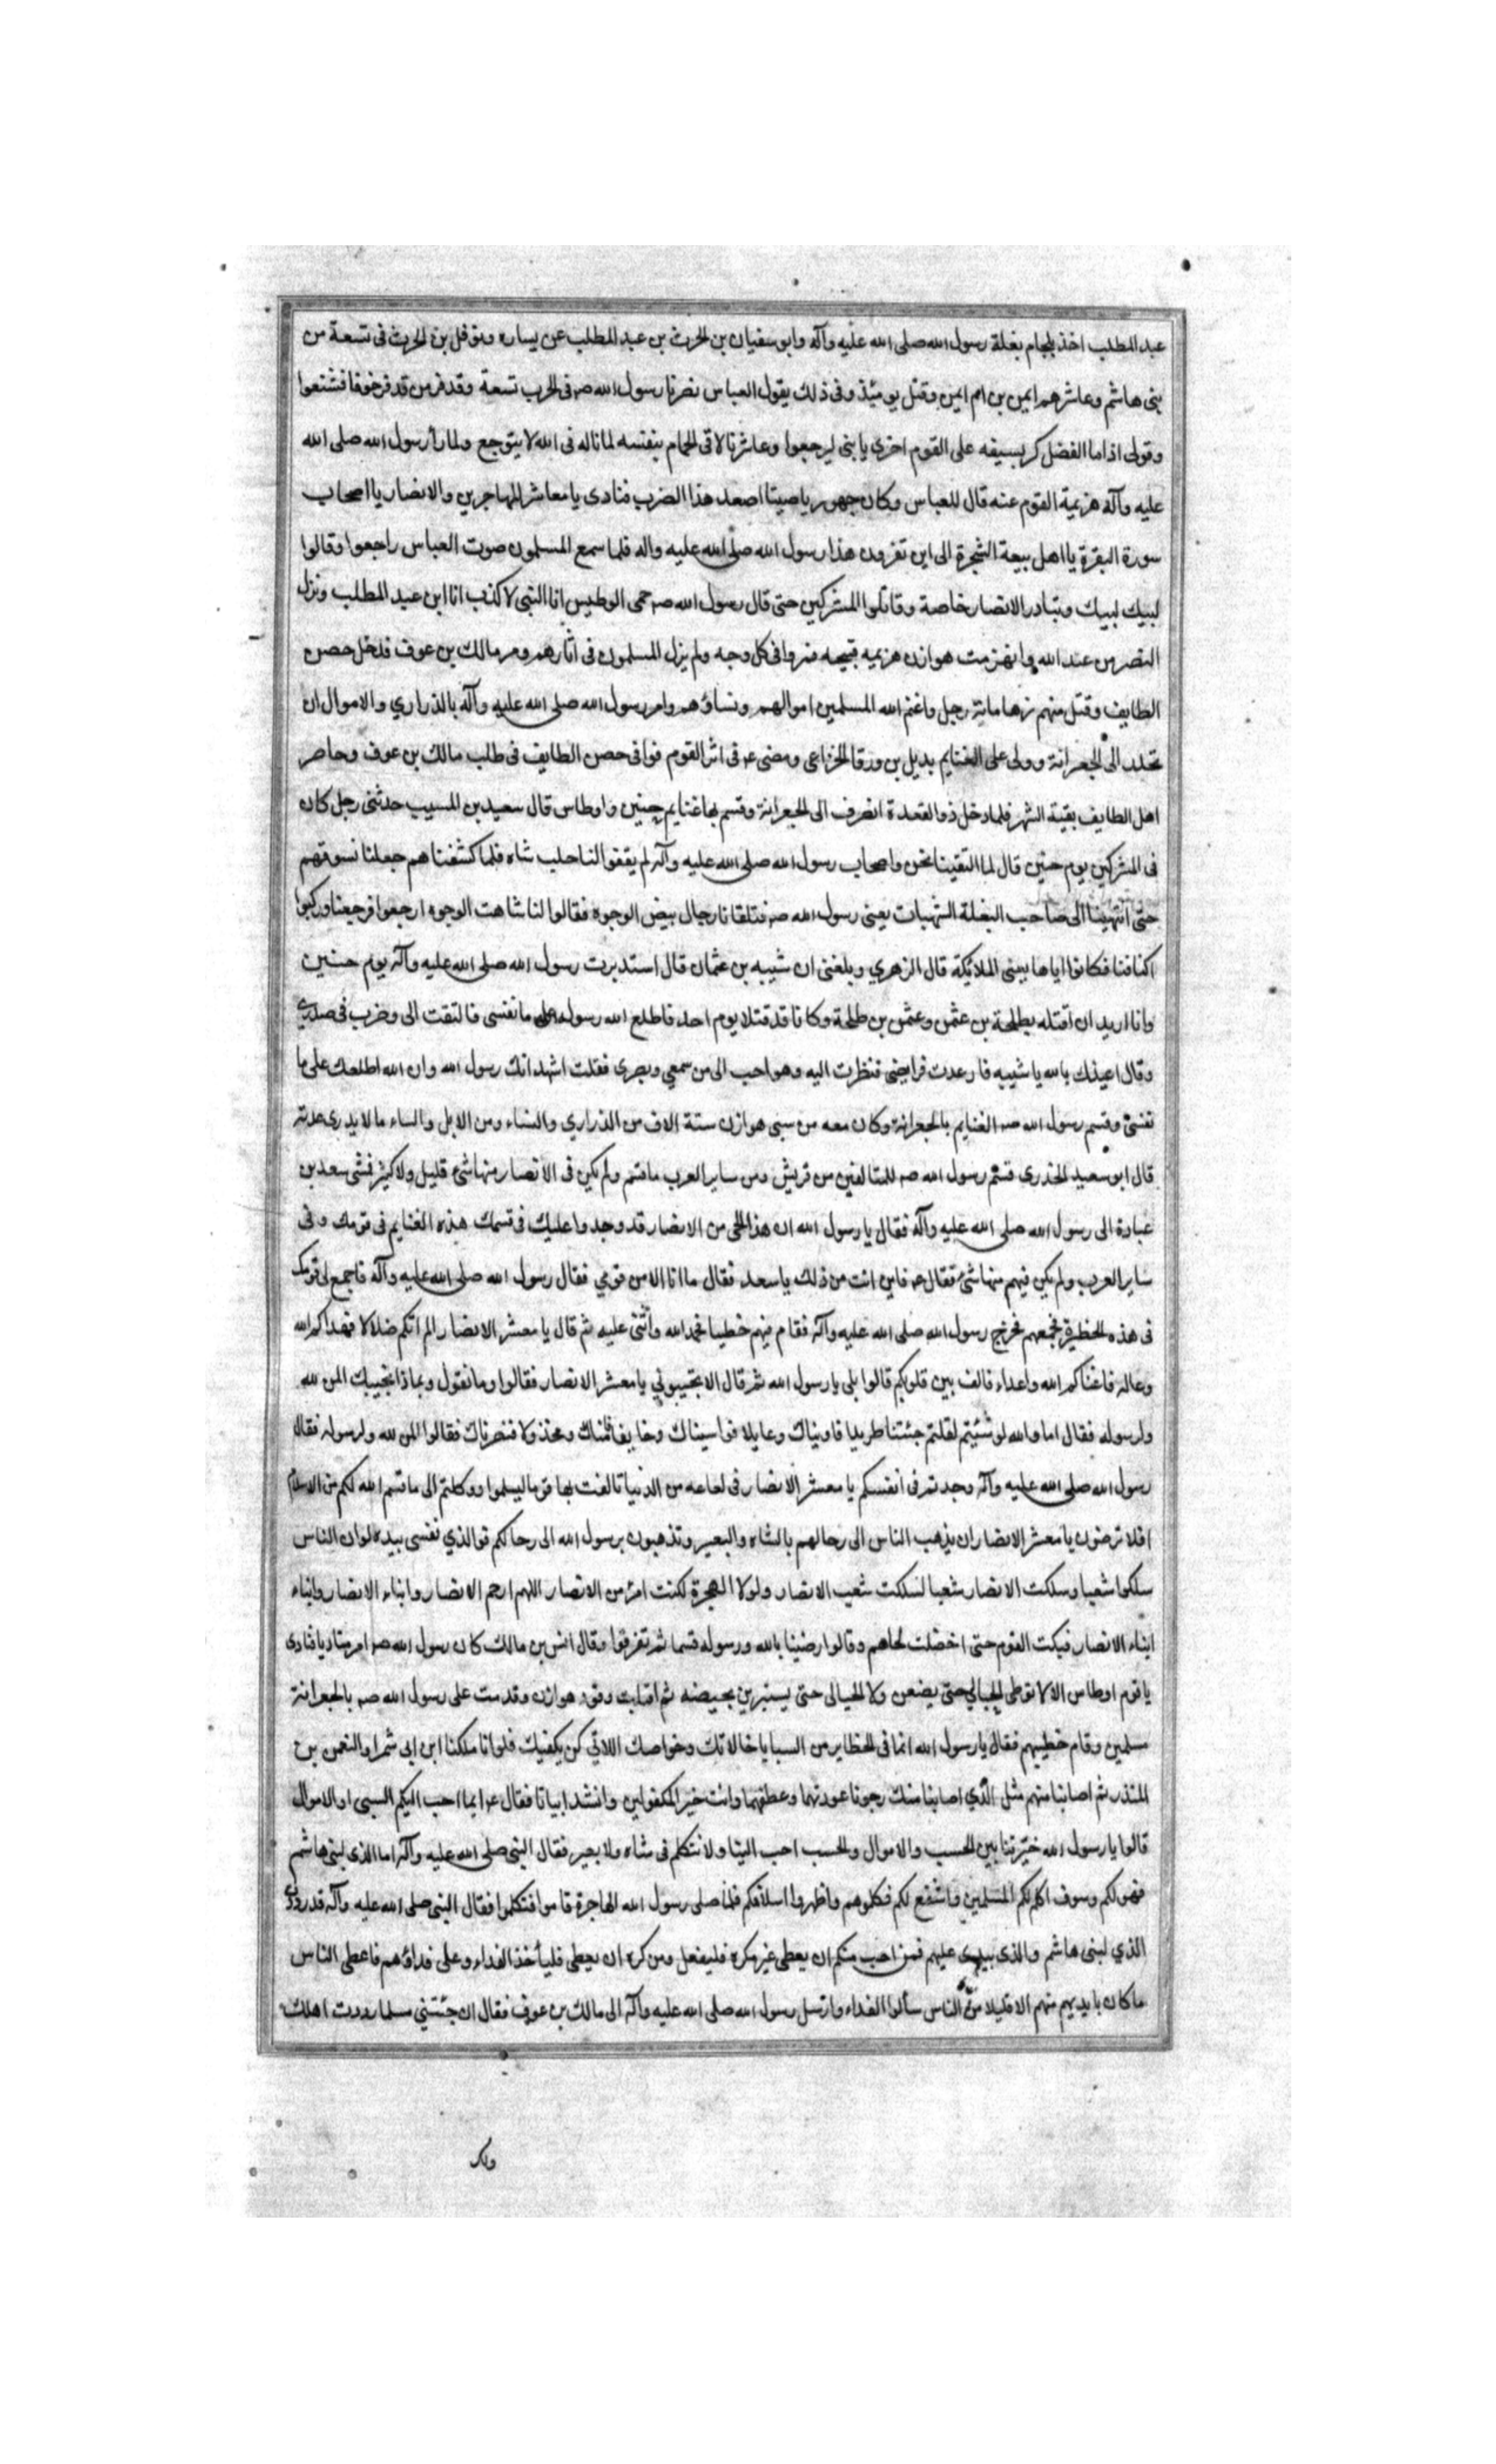 عبد المطلب اخذ بلجام بغلة رسول الله صلى الله عليه وآله وابو سفيان بن الحرث بن عبد المطلب عن يساره ونوفل بن الحرث فى تسعة من
بنى هاشم وعاشرهم ايمن بن ام ايمن وقتل يومئذ وفى ذلك يقول العباس نصرنا رسول الله صه فى الحرب تسعة وقد فر من قد فر خوفا فتشتعوا
وقولى اذا ما الفضل كر بسيفه على القوم اخرى يا بنى ليرجعوا وعاشرنا لاقى الحمام بنفسه لما ناله فى الله لا يتوجع ولما رأ رسول الله صلى الله
عليه وآله هزيمة القوم عنه قال للعباس وكان جهوريا صيتا اصعد هذا الضرب فنادى يا معاشر المهاجرين والانصار يا اصحاب
سورة البقرة يا اهل بيعة الشجرة الى اين تفرون هذا رسول الله صلى الله عليه واله فلما سمع المسلمون صوت العباس راجعوا وقالوا
لبيك لبيك وتبادر الانصار خاصة وقاتلوا المشركين حتى قال رسول الله صه حمى الوطيس انا النبى لا كذب انا ابن عبد المطلب ونزل
النصر من عند الله وانهزمت هوازن هزيمه قبيحه فروا فى كل وجه ولم يزل المسلمون فى اثارهم ومر مالك بن عوف فدخل حصن
الطايف وقتل منهم زها مائة رجل واغنم الله المسلمين اموالهم ونساؤهم وامر رسول الله صلى الله عليه وآله بالذراري والاموال ان
تحدر الى الجعرانة وولى على الغنايم بديل بن ورقا الخزاعى ومضى ع فى اثر القوم فوافى حصن الطايف فى طلب مالك بن عوف وحاصر
اهل الطايف بقية الشهر فلما دخل ذو القعدة انصرف الى الجعرانة وقسم بها غنايم حنين واوطاس قال سعيد بن المسيب حدثنى رجل كان
فى المشركين يوم حنين قال لما التقينا نحن واصحاب رسول الله صلى الله عليه وآله لم يقفوا لنا حلب شاه فلما كشفناهم جعلنا نسوقهم
حتى انتهينا الى صاحب البغلة الشهبات يعنى رسول الله صه فتلقانا رجال بيض الوجوه فقالوا لنا شاهت الوجوه ارجعوا فرجعنا وركبوا
اكتافنا فكانوا اياها يعنى الملائكة قال الزهري وبلغنى ان شيبه بن عثمان قال استدبرت رسول الله صلى الله عليه وآله يوم حنين
وانا اريد ان اقتله بطلحة بن عثمن وعثمن بن طلحة وكانا قد قتلا يوم احد فاطلع الله رسوله على ما نفسى فالتفت الى وضرب فى صدرى
وقال اعيذك بالله يا شيبه فارعدت فرايصى فنظرت اليه وهو احب الى من سمعي وبصرى فقلت اشهد انك رسول الله وان الله اطلعك على ما
نفسى وقسم رسول الله صه الغنايم بالجعرانة وكان معه من سبى هوازن ستة الاف من الذراري والنساء ومن الابل والساء ما لا يدرى عدته
قال ابو سعيد الخذرى قسم رسول الله صه للمتالفين من قريش ومن ساير العرب ما قسم ولم يكن فى الانصار منها شئ قليل ولا كثير فمشى سعد بن
عبادة الى رسول الله صلى الله عليه وآله فقال يا رسول الله ان هذا الحى من الانصار قد وجدوا عليك فى قسمك هذه الغنايم فى قومك وفى
ساير العرب ولم يكن فيهم منها شئ فقال ع فاين انت من ذلك يا سعد فقال ما انا الا من قومي فقال رسول الله صلى الله عليه وآله فاجمع لى قومك
فى هذه الحظيرة فجمعهم فخرج رسول الله صلى الله عليه وآله فقام فيهم خطيبا فحمد الله واثنى عليه ثم قال يا معشر الانصار الم اتكم ضلالا فهداكم الله
وعالة فاغناكم الله واعداء فالف بين قلوبكم قالوا بلى يا رسول الله ثم قال الا تجيبوني يا معشر الانصار فقالوا وما نقول وبماذا نجيبك المن لله
ولرسوله فقال اما والله لو شئتم لقلتم جئتنا طريدا فاويناك وعايلا فواسيناك وخايفا فامناك ومخذولا فنصرناك فقالوا المن لله ولرسوله فقال
رسول الله صلى الله عليه وآله وجدتم فى انفسكم يا معشر الانصار فى لعاعه من الدنيا تالفت بها قوما ليسلموا ووكلتم الى ما قسم الله لكم من الاسلام
افلا ترضون يا معشر الانصار ان يذهب الناس الى رحالهم بالشاه والبعير وتذهبون برسول الله الى رحالكم فوالذي نفسى بيده لو ان الناس
سلكوا شعبا وسلكت الانصار شعبا لسلكت شعب الانصار ولولا الهجرة لكنت امرء من الانصار اللهم ارحم الانصار وابناء الانصار وابناء
ابناء الانصار فبكت القوم حتى اخضلت لحاهم وقالوا رضينا بالله ورسوله قسما ثم تفرقوا وقال انس بن مالك كان رسول الله صه امر مناديا فنادى
يا قوم اوطاس الا لا توطى الحبالى حتى يضعن ولا الحيالى حتى يستبرين بحيضه ثم اقبلت وفود هوازن وقدمت على رسول الله صه بالجعرانة
مسلمين وقام خطيبهم فقال يا رسول الله انما فى الحظاير من السبايا خالاتك وخواصك اللاتي كن يكفيك فلو انا ملكنا ابن ابى شمر او النعمن بن
المنذر ثم اصابنا منهم مثل الذي اصابنا منك رجونا عودتهما وعطفهما وانت خير المكفولين وانشد ابياتا فقال ع ايما احب اليكم السبى او الاموال
قالوا يا رسول الله خيرتنا بين الحسب والاموال والحسب احب الينا ولا نتكلم فى شاه ولا بعير فقال النبى صلى الله عليه وآله اما الذى لبنى هاشم
فهو لكم وسوف اكلم لكم المسلمين واشفع لكم فكلموهم واظهروا اسلامكم فلما صلى رسول الله الهاجرة قاموا فتكلموا فقال النبى صلى الله عليه وآله قد رددت
الذي لبنى هاشم والذى بيدى عليهم فمن احب منكم ان يعطى غير مكره فليفعل ومن كره ان يعطى فلياخذ الفداء وعلى فداؤهم فاعطى الناس
ما كان بايديهم منهم الا قليلا من الناس سألوا الفداء وارسل رسول الله صلى الله عليه وآله الى مالك بن عوف فقال ان جئتني مسلما رددت اهلك